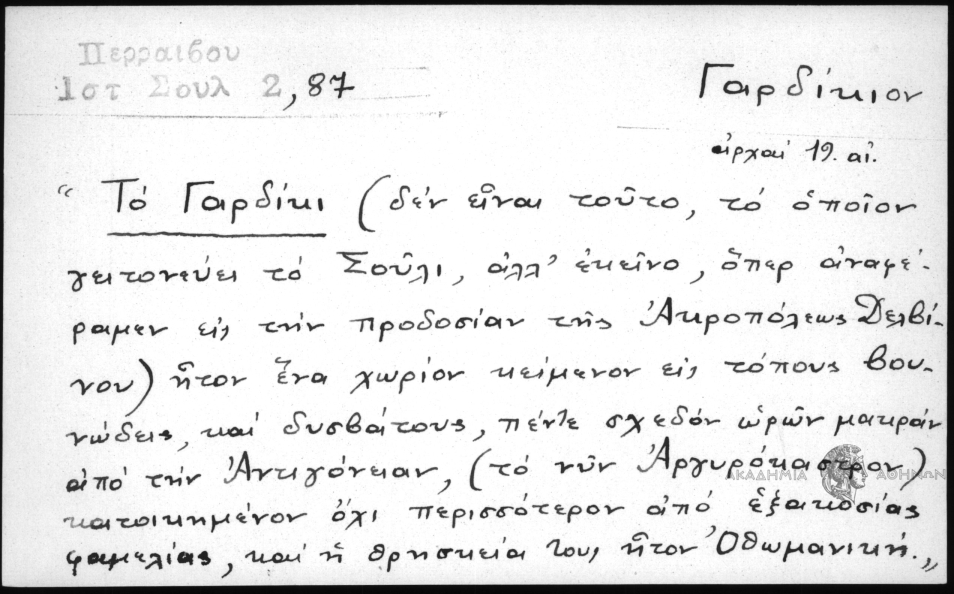 Περραιβου
Ιστ Σουλ 2,87
Γαρδίκιον
ἀρχαί 19. αἰ.
“ Τό Γαρδίκι (δέν εἶναι τοῦτο, τό ὁποῖον
γειτονεύει τό Σοῦλι, ἀλλ’ ἐκεῖνο, ὅπερ ἀναφέ-
ραμεν εἰς τήν προδοσίαν τῆς Ἀκροπόλεως Δελβί-
νου) ἦτον ἕνα χωρίον κείμενον εἰς τόπους βου-
νώδεις, καί δυσβάτους, πέντε σχεδόν ὡρῶν μακράν
ἀπό τήν Ἀντιγόνειαν, (τό νῦν Ἀργυρόκαστρον)
ΑΚΑΔΗΜΙΑ ΑΘΗΝΩΝ
κατοικημένον ὄχι περισσότερον ἀπό ἑξακοσίας
φαμελίας, καί ἡ θρησκεία τους ἦτον Ὀθωμανική.„